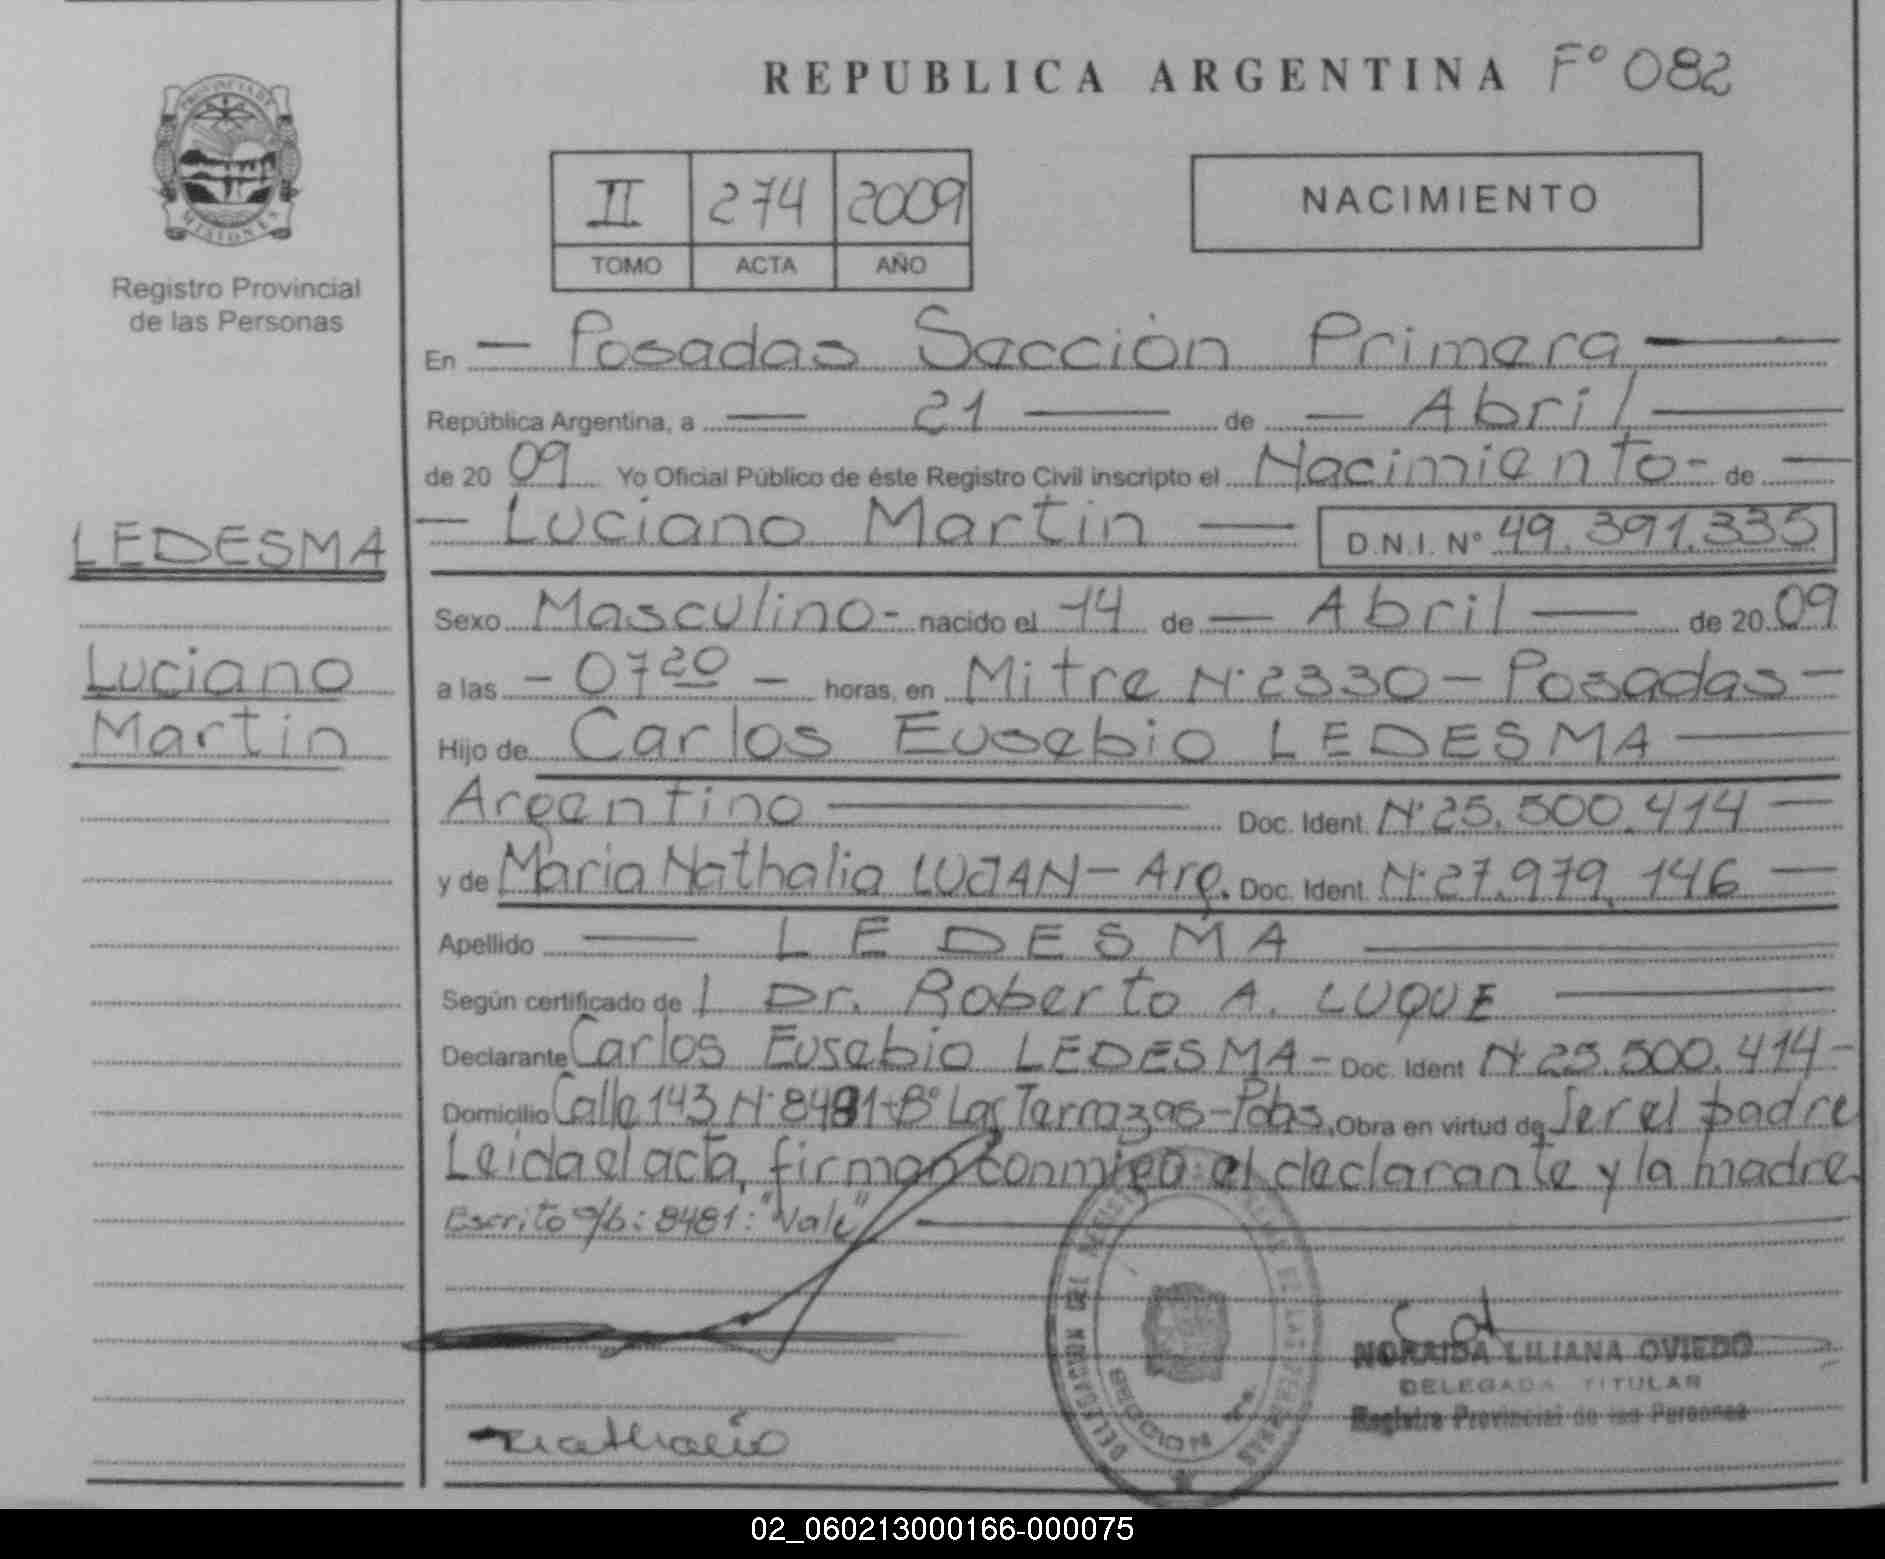 REPUBLICA ARGENTINA Fº 082
PROVINCIA DE
MISIONES
Registro Provincial
de las Personas
II 274 2009
TOMO ACTA AÑO
NACIMIENTO
En — Posadas Sección Primera —
República Argentina, a — 21 — de — Abril —
de 20 09 Yo Oficial Público de éste Registro Civil inscripto el Nacimiento - de —
LEDESMA
Luciano
Martin
— Luciano Martin — D.N.I. Nº 49.391.335
Sexo Masculino - nacido el 14 de — Abril — de 20 09
a las - 07 20 - horas, en Mitre Nº 2330 - Posadas -
Hijo de Carlos Eusebio LEDESMA —
Argentino — Doc. Ident. Nº 25.500.414 —
y de Maria Nathalia LUJAN - Arg. Doc. Ident. Nº 27.979.146 —
Apellido — LEDESMA —
Según certificado de l Dr. Roberto A. LUQUE —
Declarante Carlos Eusebio LEDESMA - Doc. Ident Nº 25.500.414 -
Domicilio Calle 143 Nº 8481 - Bº Las Terrazas - Pdas. Obra en virtud de Ser el padre
Leida el acta, firman conmigo el declarante y la madre
Escrito s/b: 8481: "Vale" —
NORAIDA LILIANA OVIEDO
DELEGADA TITULAR
Registro Provincial de las Personas
Nathalia
02_060213000166-000075